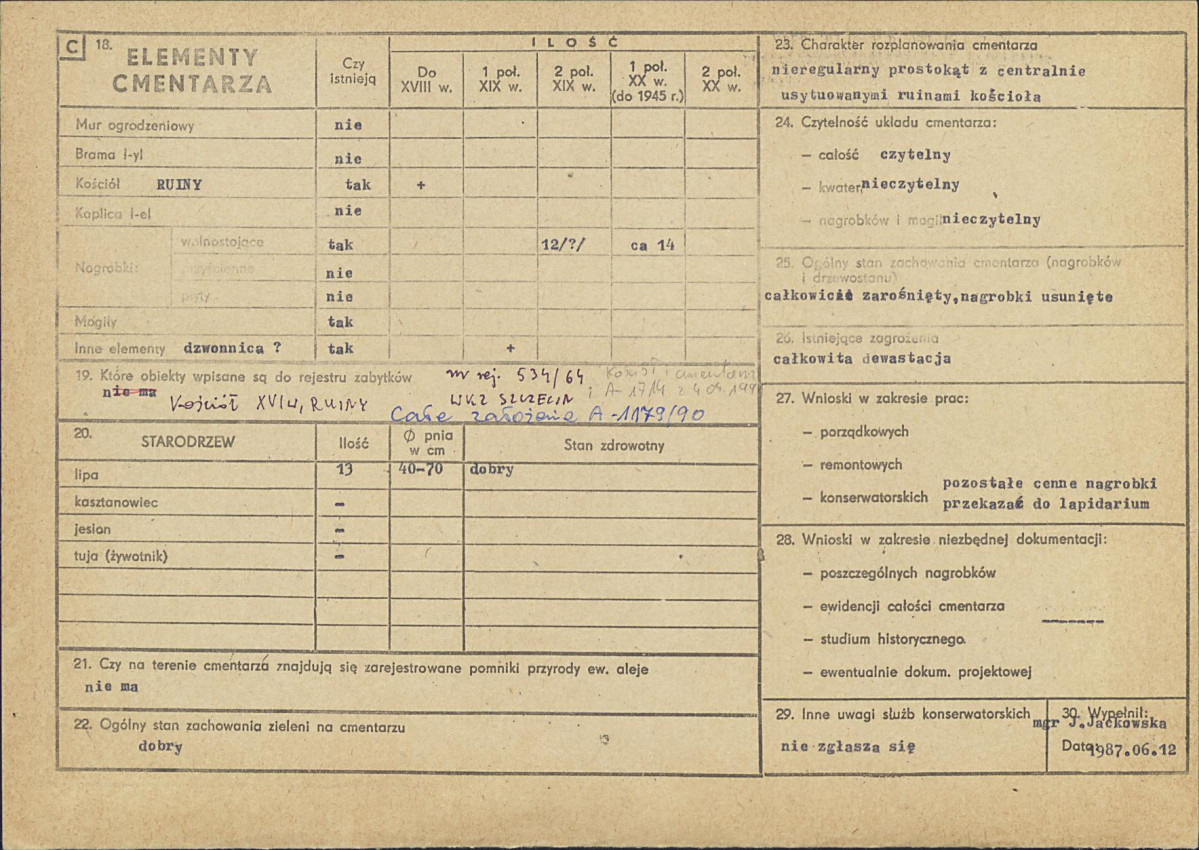 C 18. ELEMENTY CMENTARZA
Czy istnieją
I L O Ś Ć
Do XVIII w.
1 poł. XIX w.
2 poł. XIX w.
1 poł. XX w. (do 1945 r.)
2 poł. XX w.
Mur ogrodzeniowy nie
Brama l-yl nie
Kościół RUINY tak +
Kaplica l-el nie
Nagrobki:
wolnostojące tak 12/?/ ca 14
przyścienne nie
płyty nie
Mogiły tak
Inne elementy dzwonnica ? tak +
19. Które obiekty wpisane są do rejestru zabytków
nie ma
nr rej. 534/64
Kościół i cmentarz
Kościół XVI w, RUINY
WKZ SZCZECIN
i A-1714 z 4.09.199
Całe założenie A-1179/90
20. STARODRZEW Ilość Ø pnia w cm Stan zdrowotny
lipa 13 40-70 dobry
kasztanowiec -
jesion -
tuja (żywotnik) -
21. Czy na terenie cmentarza znajdują się zarejestrowane pomniki przyrody ew. aleje
nie ma
22. Ogólny stan zachowania zieleni na cmentarzu
dobry
23. Charakter rozplanowania cmentarza
nieregularny prostokąt z centralnie
usytuowanymi ruinami kościoła
24. Czytelność układu cmentarza:
— całość czytelny
— kwater nieczytelny
— nagrobków i mogił nieczytelny
25. Ogólny stan zachowania cmentarza (nagrobków
i drzewostanu)
całkowicie zarośnięty,nagrobki usunięte
26. Istniejące zagrożenia
całkowita dewastacja
27. Wnioski w zakresie prac:
— porządkowych
— remontowych
— konserwatorskich
pozostałe cenne nagrobki
przekazać do lapidarium
28. Wnioski w zakresie niezbędnej dokumentacji:
— poszczególnych nagrobków
— ewidencji całości cmentarza
-------
— studium historycznego
— ewentualnie dokum. projektowej
29. Inne uwagi służb konserwatorskich
nie zgłasza się
30. Wypełnił:
mgr J.Jackowska
Data 1987.06.12